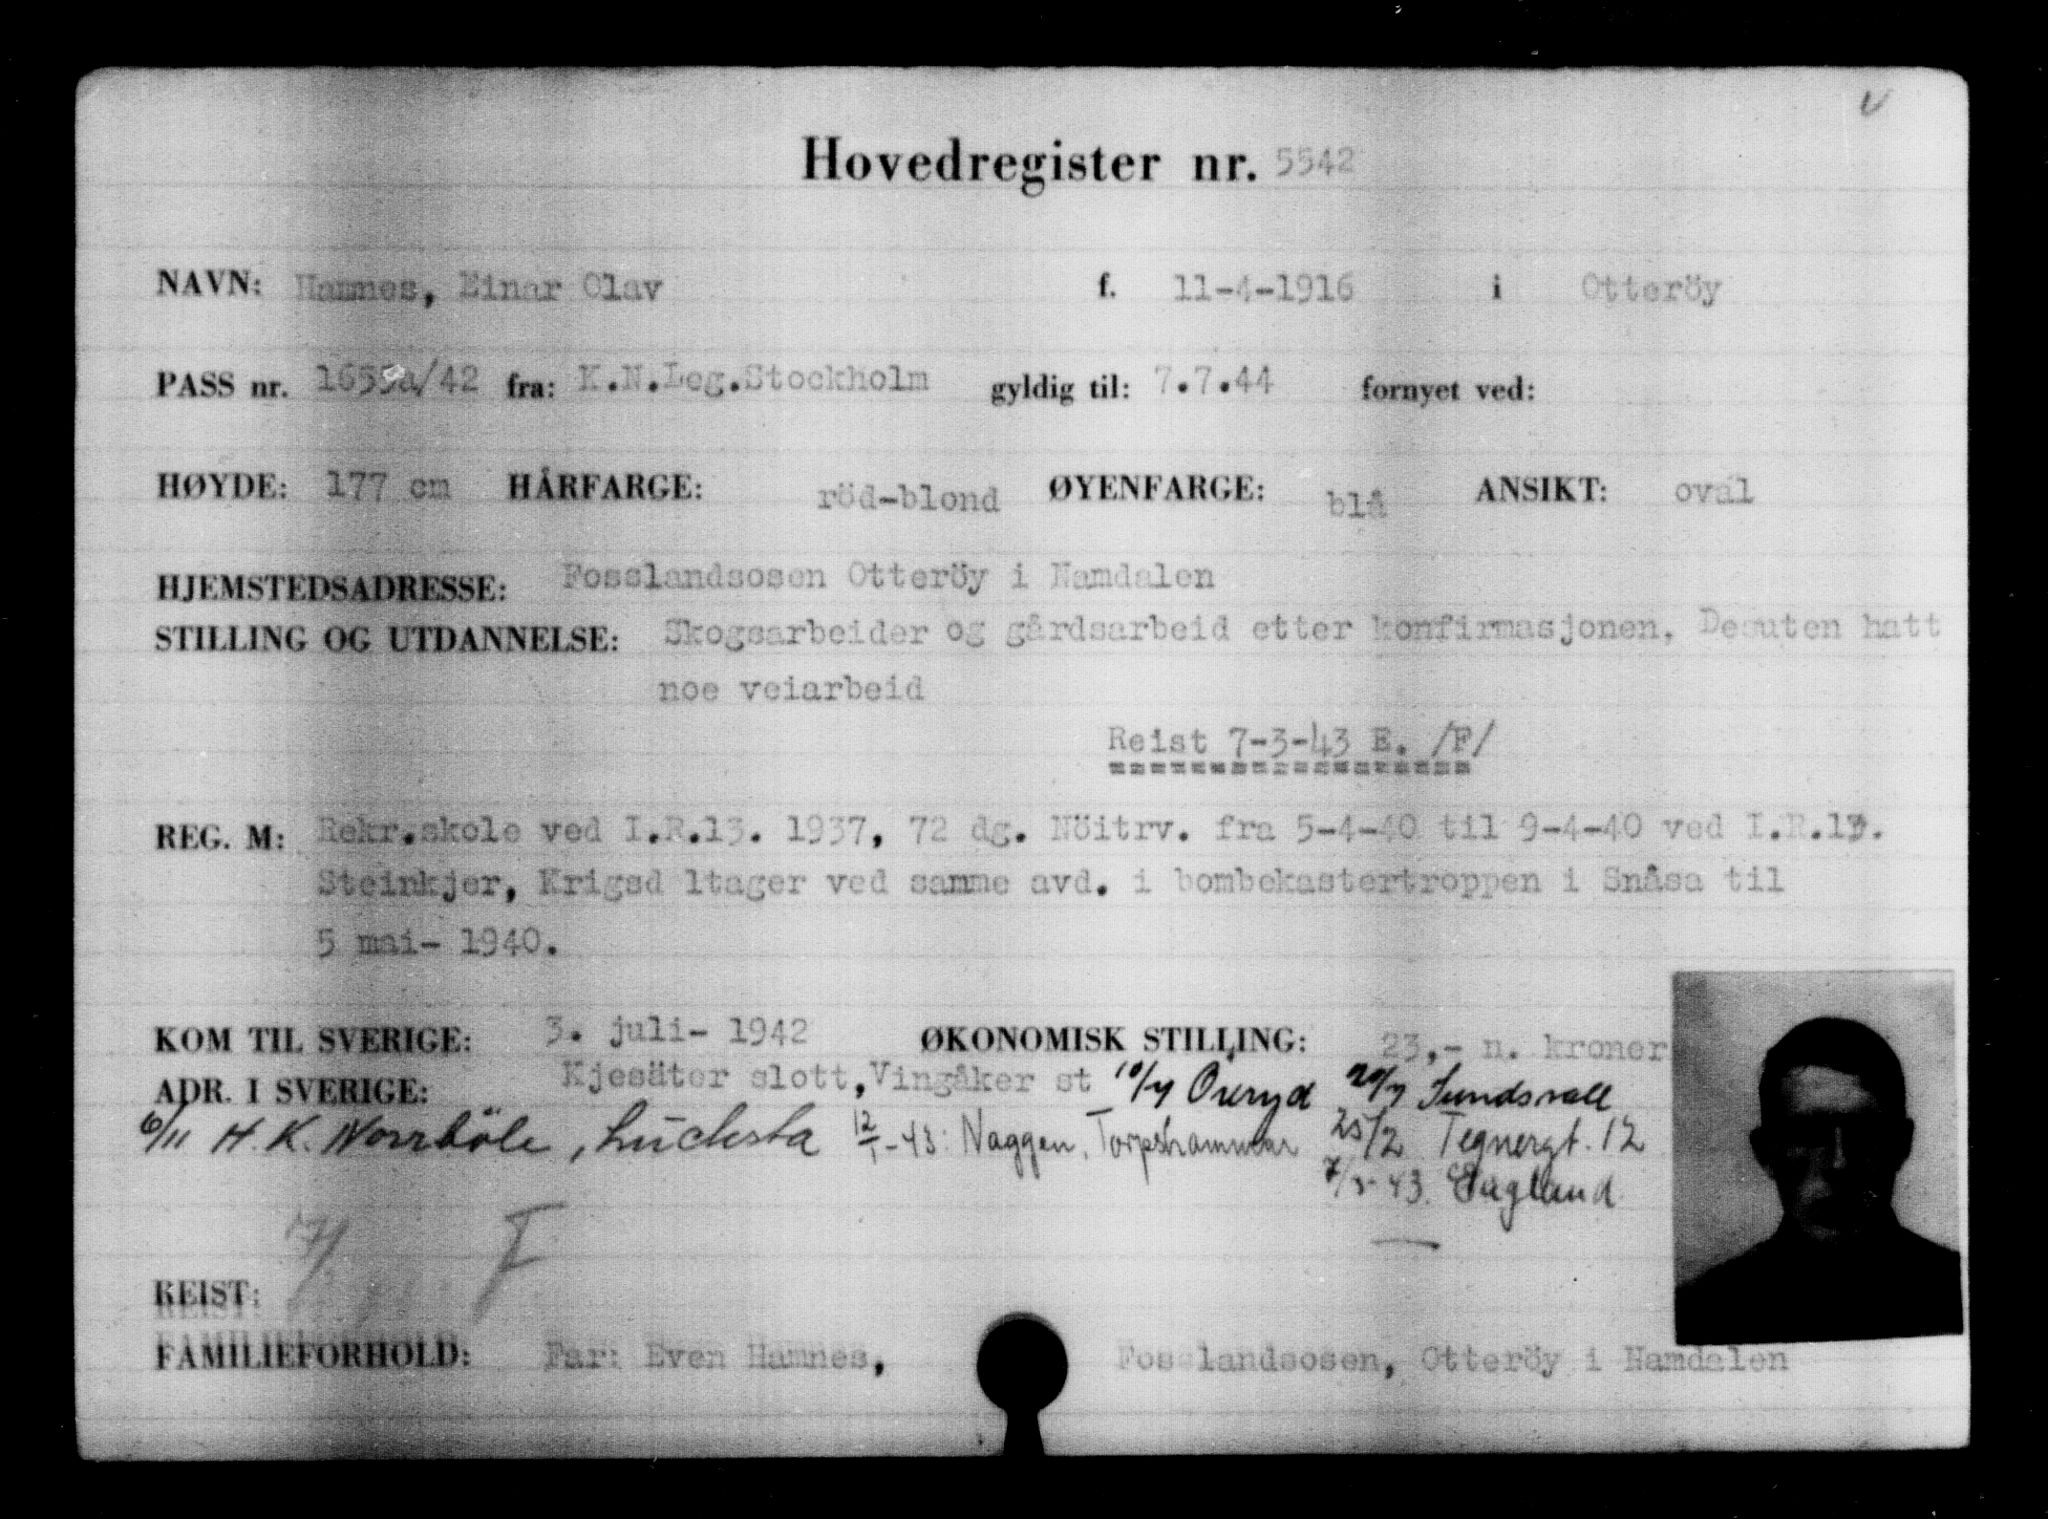 Hovedregister nr. 5542
NAVN: Hamnes, Einar Olav f. 11-4-1916 i Otteröy
PASS nr. 1659a/42 fra: K.N.Leg.Stockholm gyldig til: 7.7.44 fornyet ved:
HØYDE: 177 cm HÅRFARGE: röd-blond ØYENFARGE: blå ANSIKT: oval
HJEMSTEDSADRESSE: Fosslandsosen Otteröy i Namdalen
STILLING OG UTDANNELSE: Skogsarbeider og gårdsarbeid etter konfirmasjonen. Desuten hatt
noe veiarbeid
Reist 7-3-43 E. /F/
REG. M: Rekr.skole ved I.R.13. 1937, 72 dg. Nöitrv. fra 5-4-40 til 9-4-40 ved I.R.13.
Steinkjer, Krigsd ltager ved samme avd. i bombekastertroppen i Snåsa til
5 mai- 1940.
KOM TIL SVERIGE: 3. juli- 1942 ØKONOMISK STILLING: 23,- n. kroner
ADR. I SVERIGE: Kjesäter slott, Vingåker st 10/7 Öreryd 20/7 Sundsvall
6/11 H.K. Norrböle, Lucksta 12/1-43: Naggen, Torpshammar 25/2 Tegnergt. 12
7/3-43. England
7/ F
REIST:
FAMILIEFORHOLD: Far: Even Hamnes, Fosslandsosen, Otteröy i Namdalen